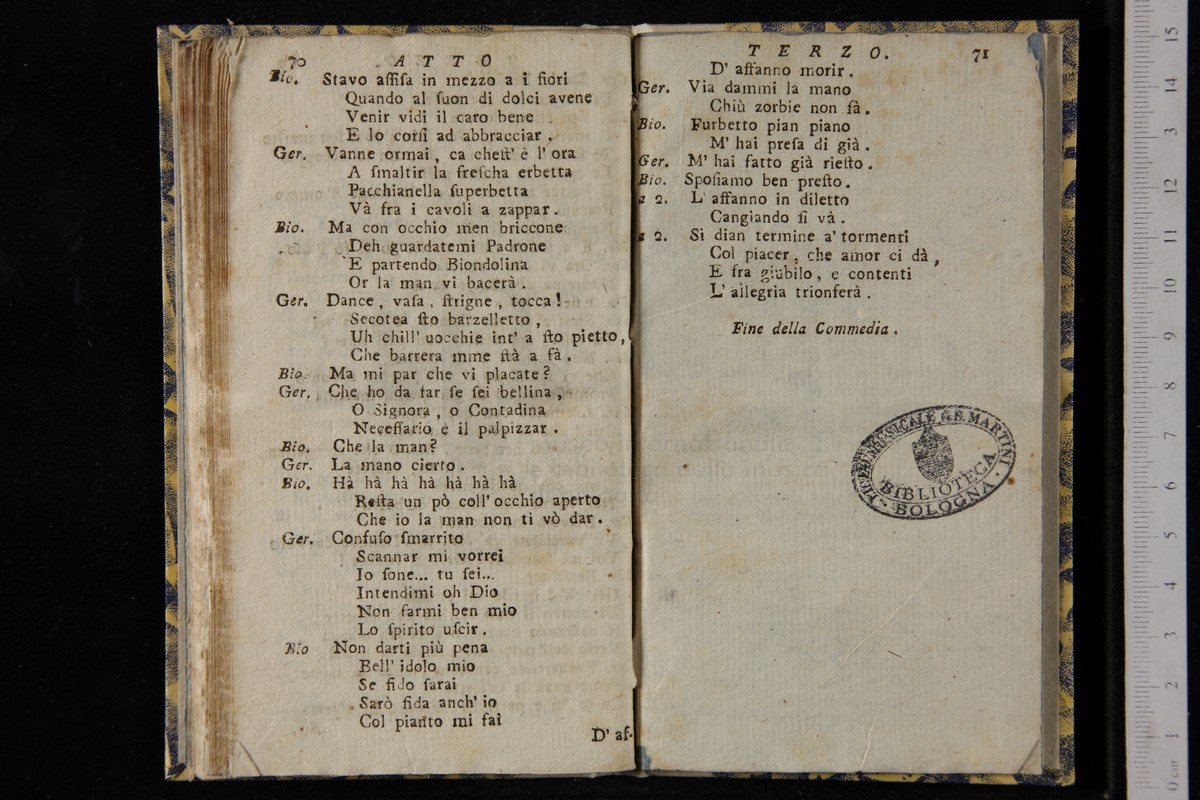 70 ATTO
Bio. Stavo aſſiſa in mezzo a i fiori
Quando al ſuon di dolci avene
Venir vidi il caro bene
E lo corſi ad abbracciar.
Ger. Vanne ormai, ca cheſt' è l' ora
A ſmaltir la freſcha erbetta
Pacchianella ſuperbetta
Và fra i cavoli a zappar.
Bio. Ma con occhio men briccone
Deh guardatemi Padrone
E partendo Biondolina
Or la man vi bacerà.
Ger. Dance, vaſa, ſtrigne, tocca!
Secotea ſto barzelletto,
Uh chill' uocchie int' a ſto pietto,
Che barrera mme ſtà a fà.
Bio Ma mi par che vi placate?
Ger. Che ho da far ſe ſei bellina,
O Signora, o Contadina
Neceſſario è il palpizzar.
Bio. Che la man?
Ger. La mano cierto.
Bio. Hà hà hà hà hà hà hà
Reſta un pò coll' occhio aperto
Che io la man non ti vò dar.
Ger. Confuſo ſmarrito
Scannar mi vorrei
Io ſone... tu ſei...
Intendimi oh Dio
Non farmi ben mio
Lo ſpirito uſcir.
Bio Non darti più pena
Bell' idolo mio
Se fido ſarai
Sarò fida anch' io
Col pianto mi fai
D' af-
TERZO. 71
D' affanno morir.
Ger. Via dammi la mano
Chiù zorbie non fà.
Bio. Furbetto pian piano
M' hai preſa di già.
Ger. M' hai fatto già rieſto.
Bio. Spoſiamo ben preſto.
a 2. L' affanno in diletto
Cangiando ſi và.
a 2. Si dian termine a' tormenti
Col piacer, che amor ci dà,
E fra giubilo, e contenti
L' allegria trionferà.
Fine della Commedia.
MUSICALE G.B. MARTINI
BIBLIOTECA
BOLOGNA
15
14
13
12
11
10
9
8
7
6
5
4
3
2
1
0 cm